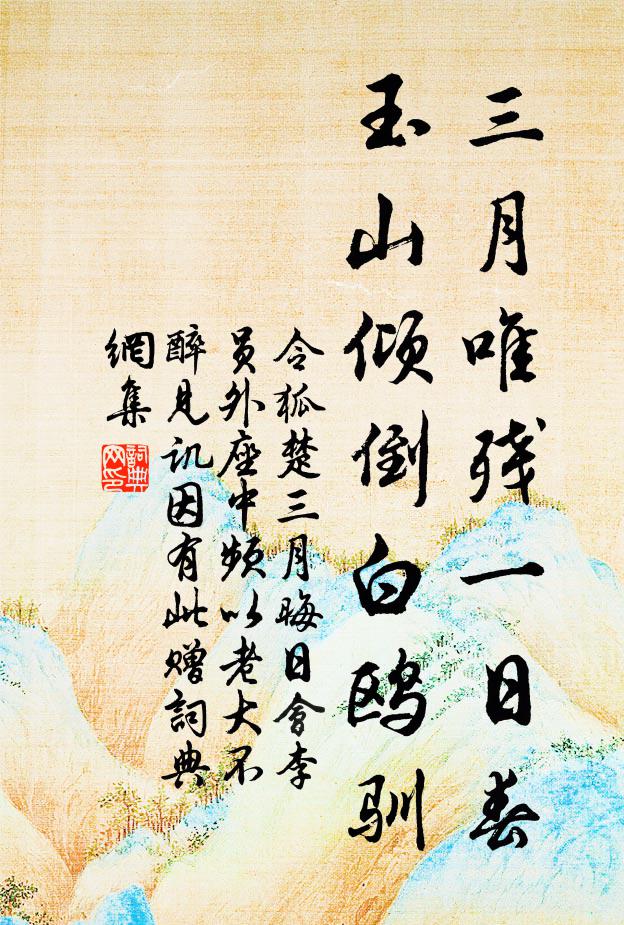 三月唯残一日春
玉山倾倒白鸥驯
令狐楚三月晦日會李
员外座中频以老大不
醉見讥因有此赠詞典
網集
詞典
网印